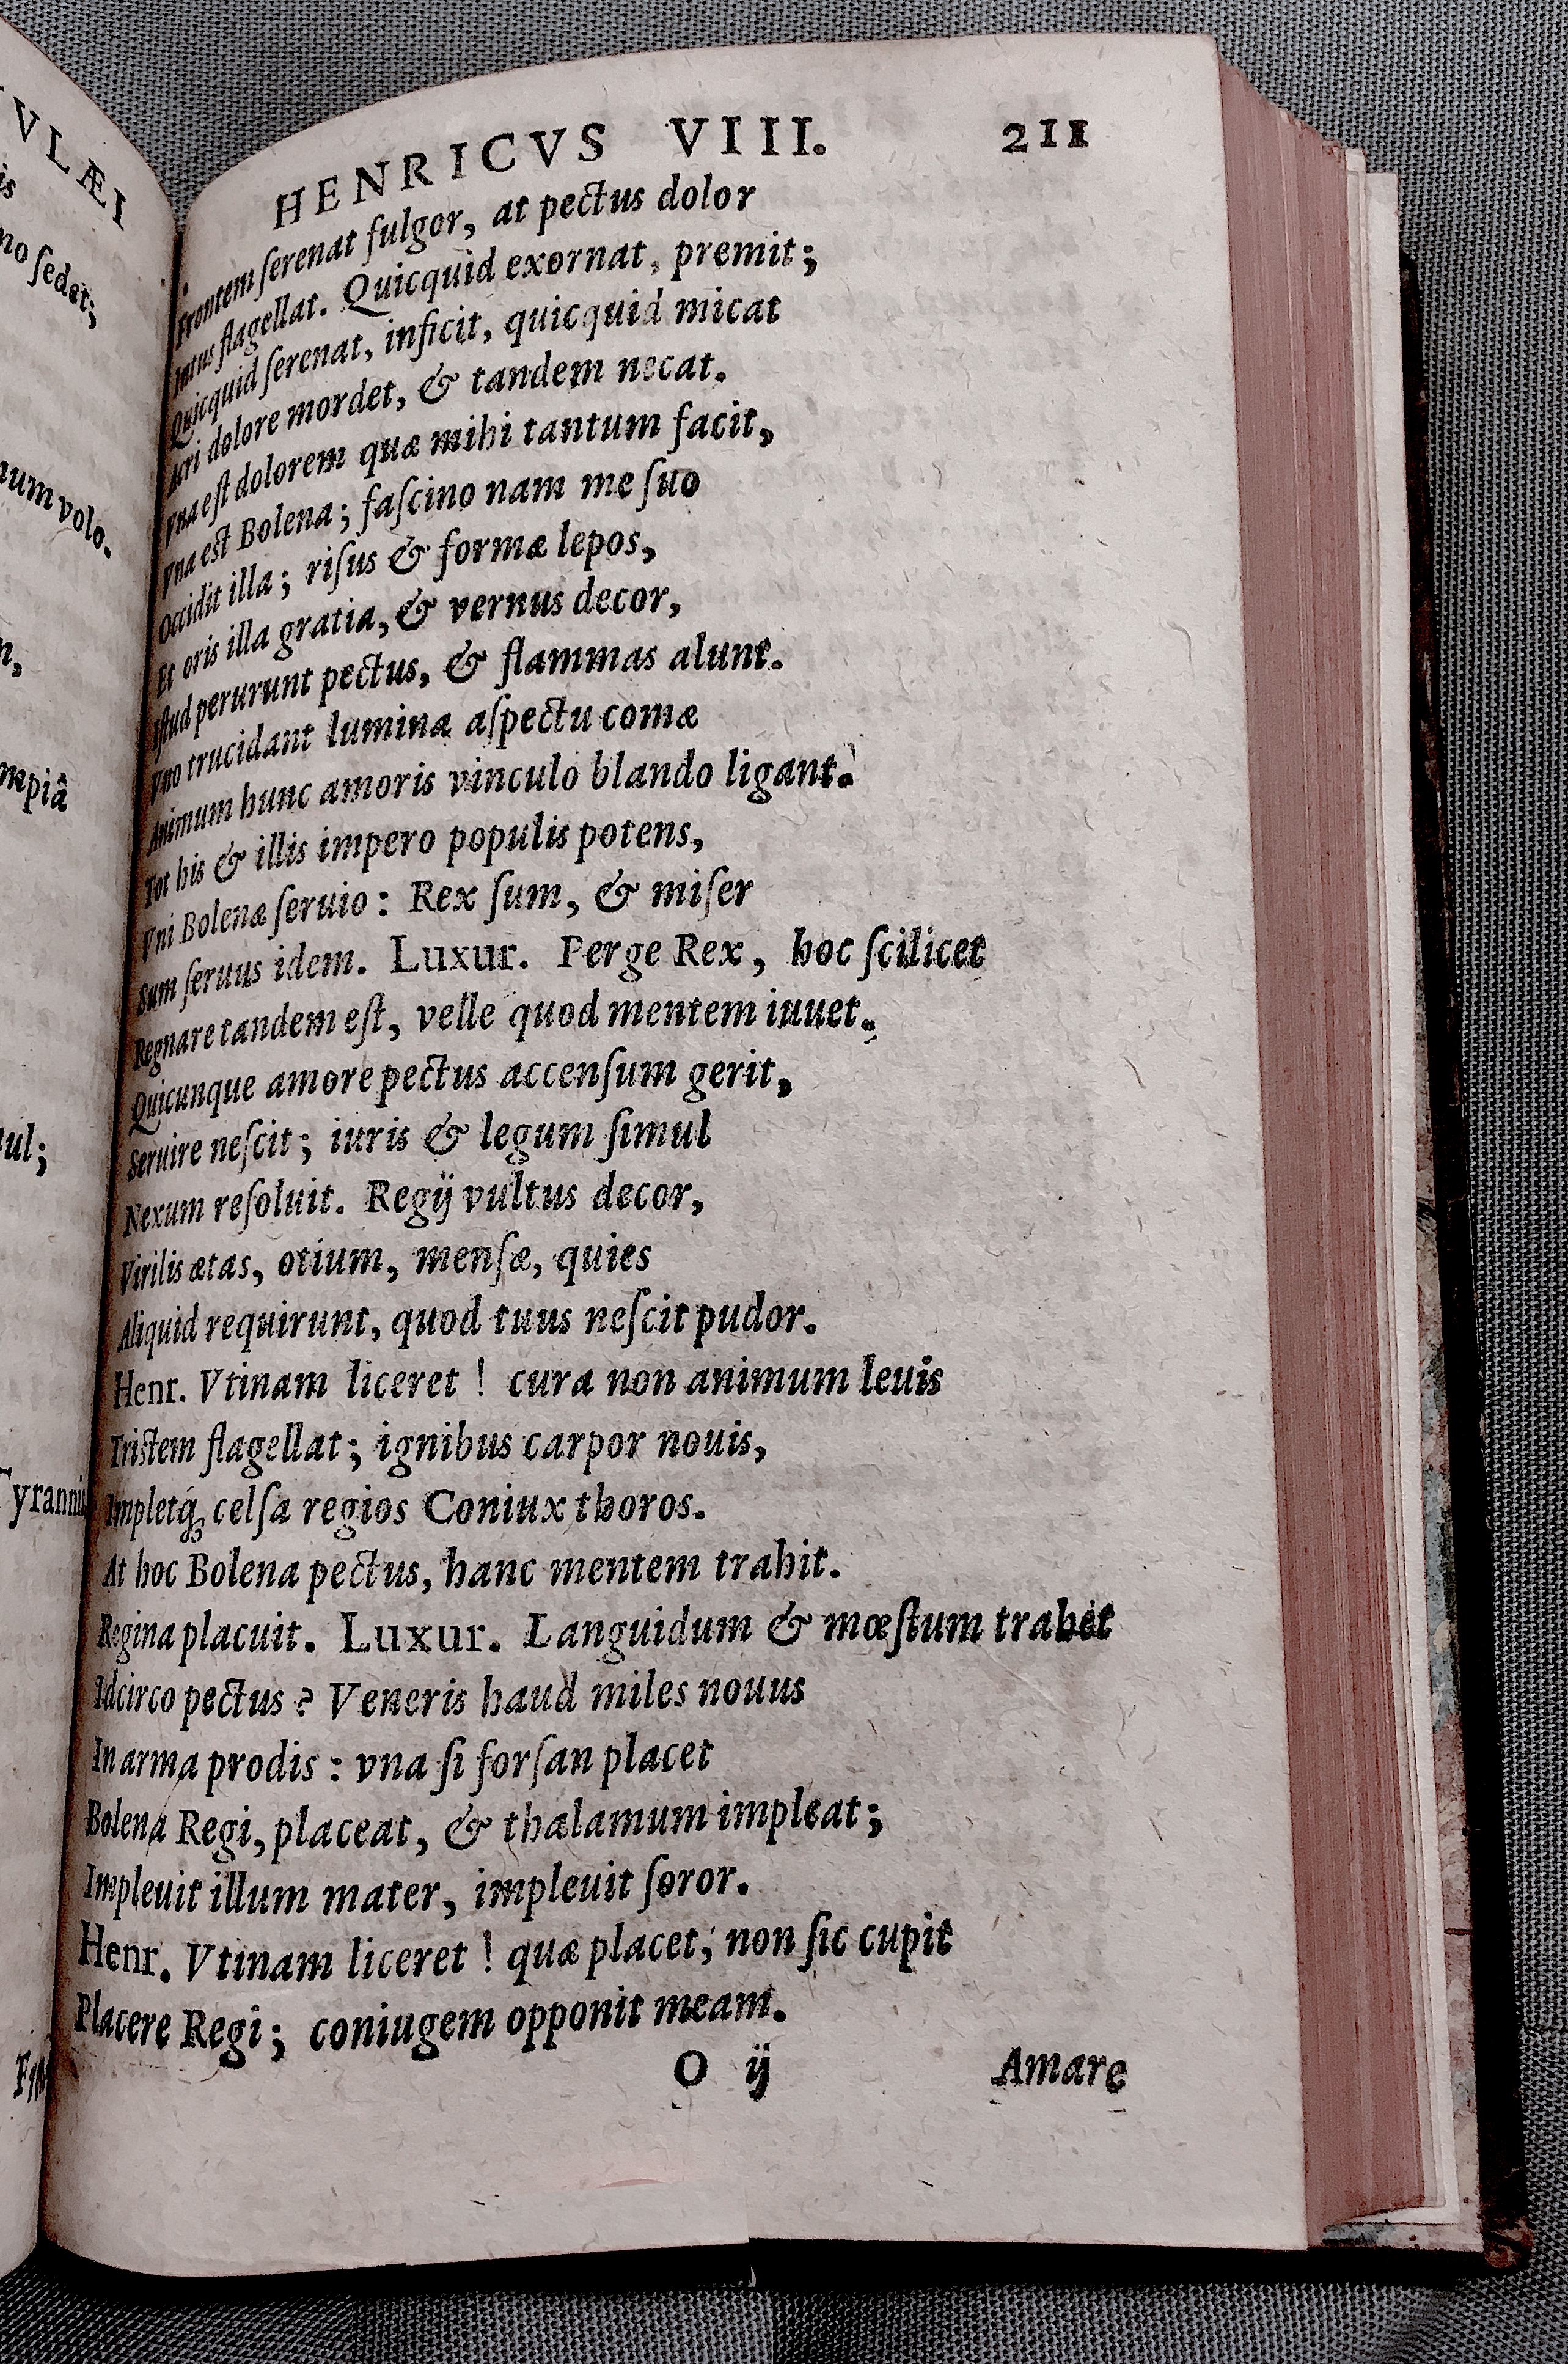 VLÆI
is
no ſedet;
num volo.
n,
mpiâ
ul;
Tyrannis
HENRICVS VIII. 211
Frontem ſerenat fulgor, at pectus dolor
Intus flagellat. Quicquid exornat, premit;
Quicquid ſerenat, inficit, quicquid micat
Acri dolore mordet, & tandem necat.
Vna eſt dolorem quæ mihi tantum facit,
Vna eſt Bolena; faſcino nam me ſuo
Occidit illa; riſus & formæ lepos,
Et oris illa gratia, & vernus decor,
Iſtud perurunt pectus, & flammas alunt.
Vno trucidant lumina aſpectu comæ
Animum hunc amoris vinculo blando ligant.
Tot his & illis impero populis potens,
Vni Bolenæ ſeruio: Rex ſum, & miſer
Sum ſeruus idem. Luxur. Perge Rex, hoc ſcilicet
Regnare tandem eſt, velle quod mentem iuuet.
Quicunque amore pectus accenſum gerit,
Seruire neſcit; iuris & legum ſimul
Nexum reſoluit. Regij vultus decor,
Virilis ætas, otium, menſæ, quies
Aliquid requirunt, quod tuus neſcit pudor.
Henr. Vtinam liceret! cura non animum leuis
Triſtem flagellat; ignibus carpor nouis,
Impletq́; celſa regios Coniux thoros.
At hoc Bolena pectus, hanc mentem trahit.
Regina placuit. Luxur. Languidum & mœſtum trahet
Idcirco pectus? Veneris haud miles nouus
In arma prodis: vna ſi forſan placet
Bolena Regi, placeat, & thalamum impleat;
Impleuit illum mater, impleuit ſoror.
Henr. Vtinam liceret! quæ placet, non ſic cupit
Placere Regi; coniugem opponit meam.
O ij Amare